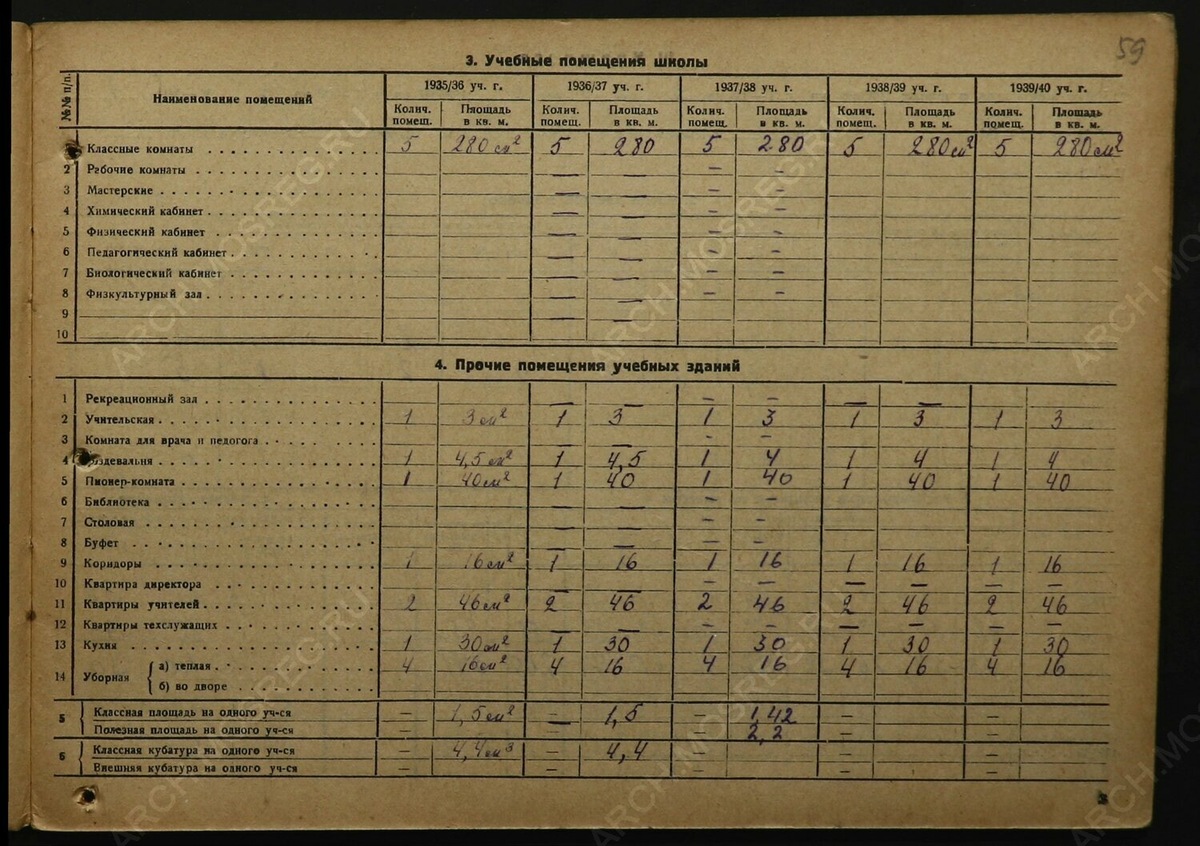 59
3. Учебные помещения школы
№№ п/п. Наименование помещений 1935/36 уч. г. 1936/37 уч. г. 1937/38 уч. г. 1938/39 уч. г. 1939/40 уч. г.
Колич. помещ. Площадь в кв. м. Колич. помещ. Площадь в кв. м. Колич. помещ. Площадь в кв. м. Колич. помещ. Площадь в кв. м. Колич. помещ. Площадь в кв. м.
Классные комнаты 5 280 см² 5 280 5 280 5 280 см² 5 280 см²
2 Рабочие комнаты — — — —
3 Мастерские — — — —
4 Химический кабинет — — — —
5 Физический кабинет — — — —
6 Педагогический кабинет — — — —
7 Биологический кабинет — — — —
8 Физкультурный зал — — — —
9 — —
10
4. Прочие помещения учебных зданий
1 Рекреационный зал — — — — — —
2 Учительская 1 3 см² 1 3 1 3 1 3 1 3
3 Комната для врача и педогога — — — —
4 Раздевальня 1 4,5 см² 1 4,5 1 4 1 4 1 4
5 Пионер-комната 1 40 см² 1 40 1 40 1 40 1 40
6 Библиотека — — — —
7 Столовая — — — —
8 Буфет — — — —
9 Коридоры 1 16 см² 1 16 1 16 1 16 1 16
10 Квартира директора — — — — — —
11 Квартиры учителей 2 46 см² 2 46 2 46 2 46 2 46
12 Квартиры техслужащих — — — — — — — —
13 Кухня 1 30 см² 1 30 1 30 1 30 1 30
14 Уборная а) теплая 4 16 см² 4 16 4 16 4 16 4 16
б) во дворе
5 Классная площадь на одного уч-ся — 1,5 см² — 1,5 — 1,42 — —
Полезная площадь на одного уч-ся — — — 2,2 — —
6 Классная кубатура на одного уч-ся — 4,4 см³ — 4,4 — —
Внешняя кубатура на одного уч-ся — — — —
ARCH.MOSREG.RU